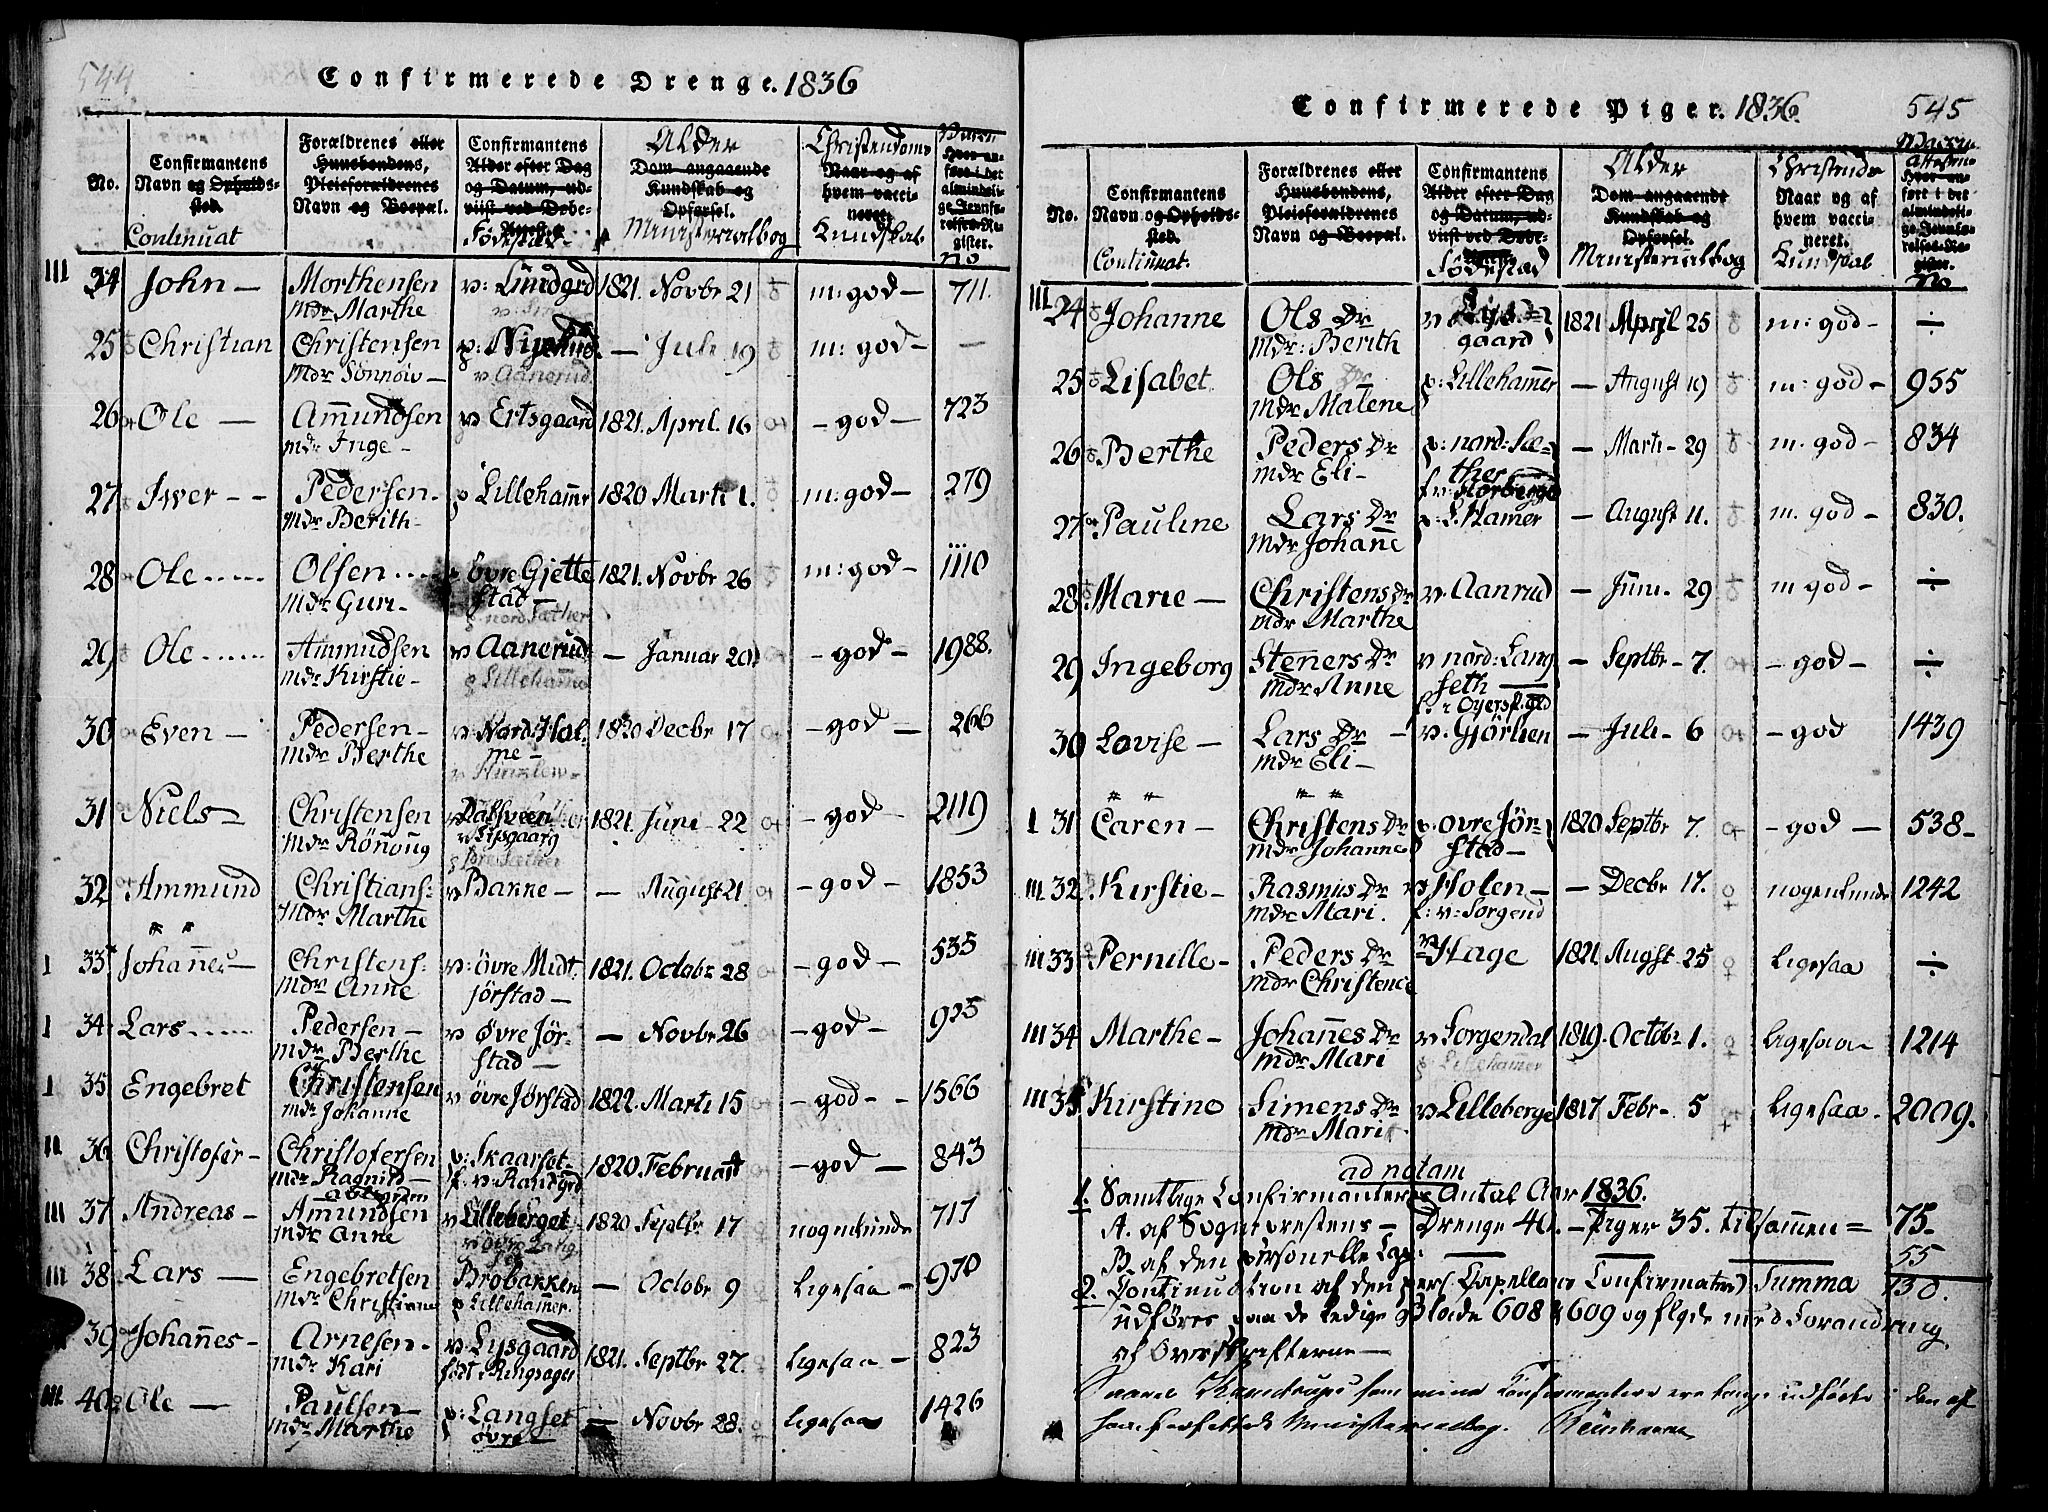 544
Confirmerede Drenge. 1836
No.
Confirmantens Navn og Opholds-sted.
Continuat
Forældrenes eller Huusbondens, Pleieforældrenes Navn og Boepæl.
Confirmantens Alder efter Dag og Datum, ud-viist ved Døbe-
Fødested
Alder
Dom angaaende Kundskab og Opførsel.
Ministerialbog
Christendoms
Naar og af hvem vacci-neret.
Kundskab
Hvor an-ført i det almindeli-ge Jevnfø-relses-Re-gister.
No
III 24 John — Morthensen v: Lundgrd 1821. Novbr 21 m: god — 711.
Mdr Marthe
25 Christian Christensen — Juli 19 m: god — —
Mdr Sönnöw — v Aanerud
26 Ole — Amundsen v Ertsgaard 1821. April. 16 — god — 723
mdr Inge —
27 Iwer — — Pedersen — p Lillehamr 1820 Marti 1. m: god — 279
Mdr Berith —
28 Ole ..... Olsen .... övre Gjette 1821. Novbr 26 m: god — 1110
Mdr Guri — stad —
nord Sæther
29 Ole ..... Ammudsen v Aanerud — Januar 20 — god — 1988.
Mdr Kirstie — p Lillehammer
30 Even — Pedersen — v Nord: Hol- 1820 Decbr 17 — god — 266
Mdr Berthe me —
31 Niels — Christensen 1821. Juni — 22 — god — 2119
Mdr Rönnoug v Lysgaard
32 Ammund Christians: v Banne — — August 21. — god — 1853
" " Mdr Marthe
1 33 Johannes — Christens: v: övre Midt. 1821. Octobr 28 — god — 535
Mdr Anne jörstad —
1 34 Lars ..... Pedersen — v Övre Jör- — Novbr 26 — god — 925
Mdr Berthe stad —
1 35 Engebret Christensen v övre Jörstad 1822. Marti 15 — god — 1566
Mdr Johanne
36 Christofer — Christofersen p: Skaarset 1820. Februar — god — 843
Mdr Ragnild — f. v: Randgrd
III 37 Andreas — Amundsen v Lilleberget 1820 Septbr 17 nogenkunde 717
Mdr Anne
III 38 Lars — Engebretsen Brobakken — Octobr 9 Ligesaa — 970
Mdr Christiane p Lillehamer.
39 Johannes — Arnesen — v: Lysgaard 1821. Septbr 27. Ligesaa — 823
Mdr Kari födt Ringsager
III 40 Ole — Paulsen — p: Langset — Novbr 28. Ligesaa 1426
Mdr Marthe övre —
Confirmerede Piger. 1836. 545
No.
Confirmantens Navn og Opholds-sted.
Continuat.
Forældrenes eller Huusbondens, Pleieforældrenes Navn og Boepæl.
Confirmantens Alder efter Dag og Datum, ud-viist ved Døbe-
Födestad
Alder
Dom angaaende Kundskab og Opførsel.
Ministerialbog
Christendo
Naar og af hvem vacci-neret.
Kundskab
Hvor an-ført i det almindeli-ge Jevnfø-relses-Re-gister.
No
III 24 Johanne Ols Dr v Lys= 1821 April 25 m: god — ÷
Mdr: Berith gaard
25 Lisabet Ols Dr p: Lillehammer — August 19 m: god — 955
Mdr Malene
26 Berthe Peders Dr p: nord: Sæ= — Marti — 29 m. god — 834
Mdr Eli — ther
f v: Storberget
27 Pauline Lars Dr p: L. Hamer — August 11. m. god — 830.
Mdr Johanne
28 Marie — Christens Dr v: Aanrud — Juni — 29 m god — ÷
Mdr Marthe
29 Ingeborg Steners Dr v nord: Lang — Septbr — 7. — god — ÷
Mdr Anne seth —
30 Lovise — Lars Dr — v. Gjörlien — Juli — 6 — god 1439
Mdr Eli —
" " " "
1 31 Caren — Christens Dr p: övre Jör- 1820 Septbr 7. — god — 538 —
Mdr Johanne stad —
III 32 Kirstie — Rasmus Dr v Holen — — Decbr 17. nogenkunde 1242
Mdr Mari. f: v: Sorgend
III 33 Pernille — Peders Dr v Hage 1821. Augst 25 Ligesaa ÷
Mdr Christence
III 34 Marthe — Johannes Dr v Sorgendal 1819. Octobr 1. Ligesaa — 1214
Mdr Mari p: Lillehammer
III 35 Kirstine Simens Dr v Lilleberge 1817 Febr — 5 Ligesaa. 2009.
Mdr Mari
ad notam
1. Samtlige Confirmanteres Antal Aar 1836.
A. af Sognepræstens — Drenge 40. — Piger 35. tilsammen = 75 —
B. af den personelle Cap: — — — 55
2. Continuation af den pers. Capellans Confirmater) Summa 130.
udföres paa de ledige Blade 608 & 609 og flgde med Forandring
af Overskrifterne —